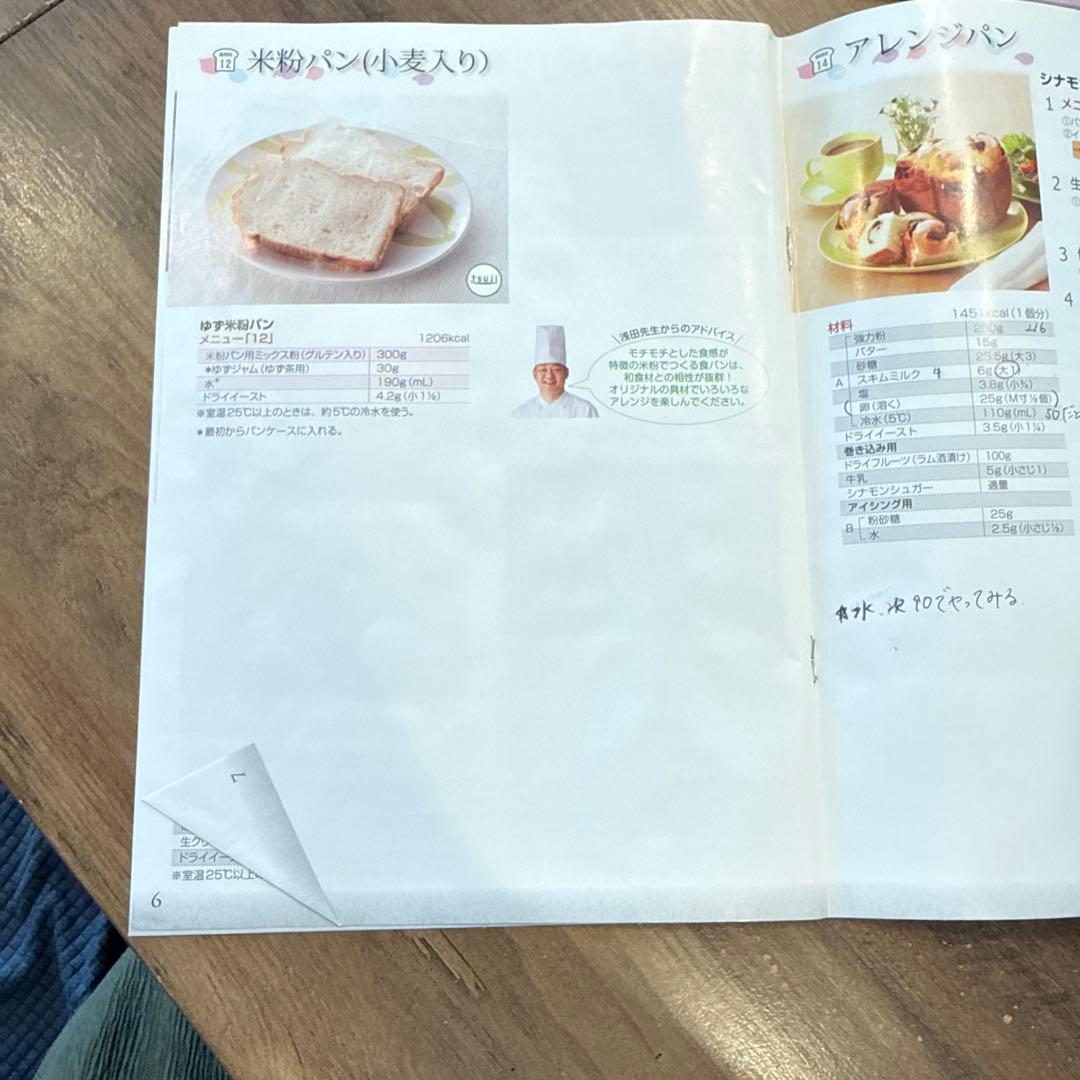 12
米粉パン(小麦入り)
tsuji
ゆず米粉パン
メニュー「12」 1206kcal
米粉パン用ミックス粉(グルテン入り) 300g
*ゆずジャム(ゆず茶用) 30g
水※ 190g(mL)
ドライイースト 4.2g(小1½)
※室温25℃以上のときは、約5℃の冷水を使う。
*最初からパンケースに入れる。
浅田先生からのアドバイス
モチモチとした食感が
特徴の米粉でつくる食パンは、
和食材との相性が抜群!
オリジナルの具材でいろいろな
アレンジを楽しんでください。
L
生ク
ドライイー
※室温25℃以上
6
14
アレンジパン
シナモ
1 メニ
2 生
3
4
材料 1451kcal(1個分)
A
強力粉 216
バター 15g
砂糖 25.5g(大3)
スキムミルク 4 6g(大1)
塩 3.8g(小¾)
卵(溶く) 25g(M寸½個)
冷水(5℃) 110g(mL) 50
ドライイースト 3.5g(小1¼)
巻き込み用
ドライフルーツ(ラム酒漬け) 100g
牛乳 5g(小さじ1)
シナモンシュガー 適量
アイシング用
B
粉砂糖 25g
水 2.5g(小さじ½)
水 次90でやってみる